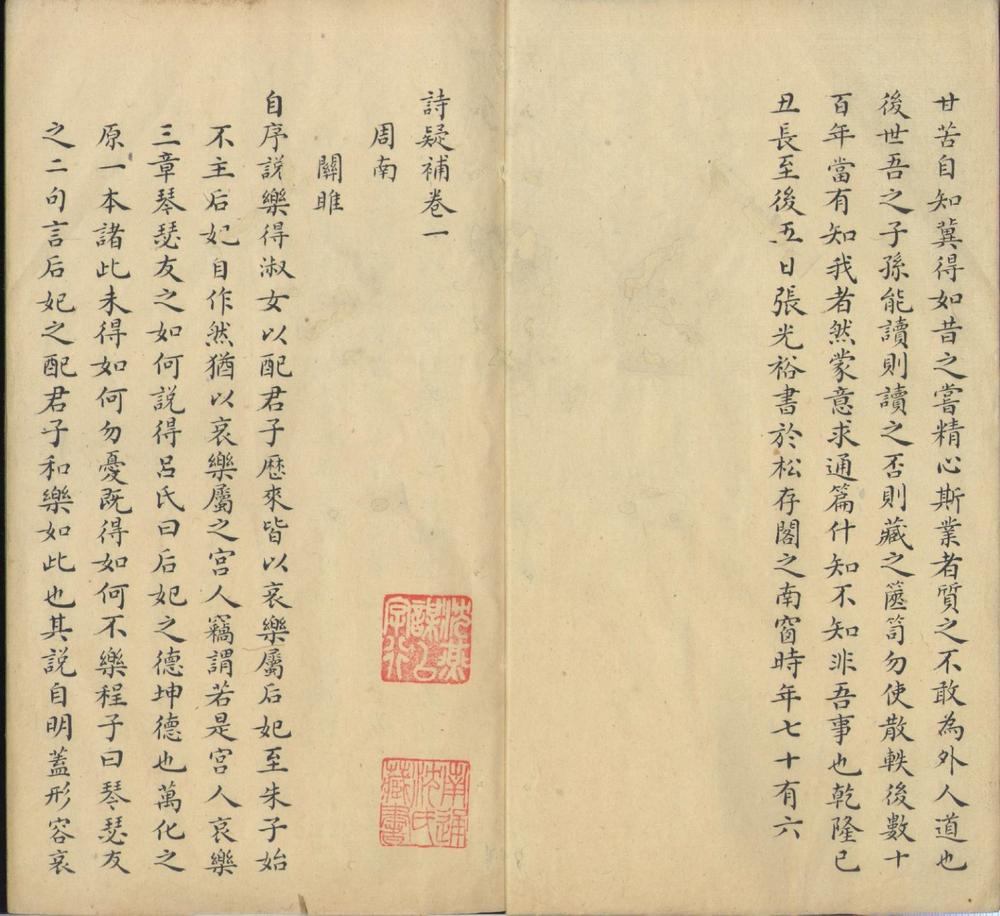 甘苦自知冀得如昔之嘗精心斯業者質之不敢為外人道也
後世吾之子孫能讀則讀之否則藏之篋笥勿使散軼後數十
百年當有知我者然蒙意求通篇什知不知非吾事也乾隆己
丑長至後五日張光裕書於松存閣之南窗時年七十有六
詩疑補卷一
周南
關雎
自序説樂得淑女以配君子歷來皆以哀樂屬后妃至朱子始
不主后妃自作然猶以哀樂屬之宮人竊謂若是宮人哀樂
三章琴瑟友之如何説得呂氏曰后妃之德坤德也萬化之
原一本諸此未得如何勿憂既得如何不樂程子曰琴瑟友
之二句言后妃之配君子和樂如此也其説自明蓋形容哀
沈燕謀以字行
南通沈氏藏書